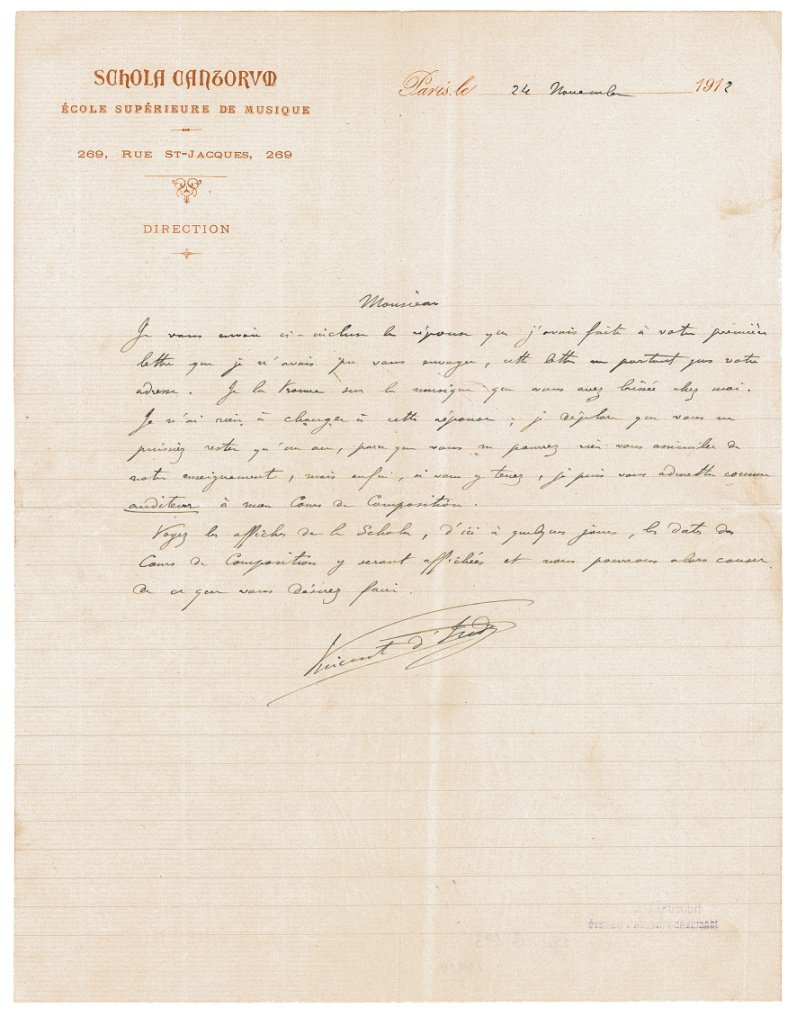 SCHOLA CANTORVM
ÉCOLE SUPÉRIEURE DE MUSIQUE
269, RUE ST-JACQUES, 269
DIRECTION
Paris, le 24 Novembre 1912
Monsieur
Je vous envoie ci-incluse la réponse que j'avais faite à votre première
lettre que je n'avais pu vous envoyer, cette lettre ne portant pas votre
adresse. Je la trouve sur la musique que vous avez laissée chez moi.
Je n'ai rien à changer à cette réponse, je déplore que vous ne
puissiez rester qu'un an, parce que vous ne pourrez rien vous assimiler de
notre enseignement, mais enfin, si vous y tenez, je puis vous admettre comme
auditeur à mon Cours de Composition.
Voyez les affiches de la Schola, d'ici à quelques jours, les dates des
Cours de Composition y seront affichées et nous pourrons alors causer
de ce que vous désirez faire.
Vincent d'Indy